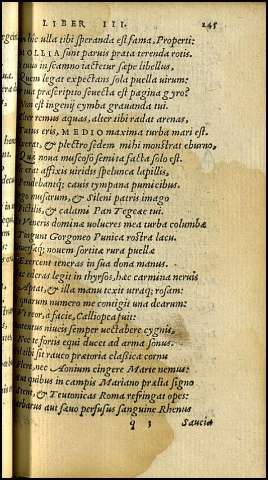 LIBER III. 245
hic ulla tibi speranda est fama, Properti:
MOLLIA sunt paruis prata terenda rotis.
tuus in scamno iactetur sæpe libellus,
Quem legat expectans sola puella uirum:
tua præscriptio seuecta est pagina gyro?
Non est ingenij cymba grauanda tui.
ter remus aquas, alter tibi radat arenas,
Tutus eris, MEDIO maxima turba mari est.
xerat, & plectro sedem mihi monstrat eburno,
Qua noua muscoso semita facta solo est.
c erat affixis uiridis spelunca lapillis,
Pendebantq; cauis tympana pumicibus.
go musarum, & Sileni patris imago
Fictilis, & calami Pan Tegeæe tui.
Veneris dominæ uolucres mea turba columbæ
Tingunt Gorgoneo Punica rostra lacu.
uersæq; nouem sortitæ rura puellæ
Exercent teneras in sua dona manus.
ec ederas legit in thyrsos, hæc carmina neruis
Aptat, & illa manu texit utraq; rosam:
quarum numero me contigit una dearum:
Vt reor a facie, Calliopea fuit:
tentus niueis semper uectabere cygnis,
Nec te fortis equi ducet ad arma sonus.
l tibi sit rauco prætoria classica cornu
Flere, nec Aonium cingere Marte nemus:
ut quibus in campis Mariano prælia signo
Stent, & Teutonicas Roma refringat opes:
arbarus aut sæuo perfusus sanguine Rhenus
q 3 Saucia